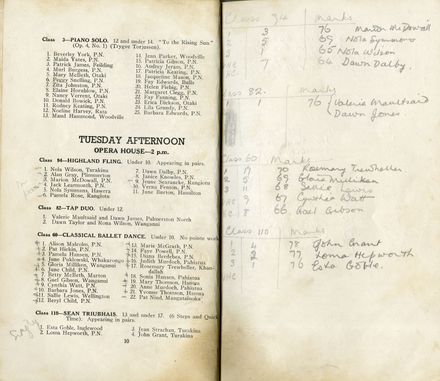 Class 3—PIANO SOLO. 12 and under 14. "To the Rising Sun"
(Op. 4, No. 1) (Trygve Torjussen).
1. Beverley York, P.N.
2. Maida Yates, P.N.
3. Patrick James, Feilding
4. Muri Burgess, P.N.
5. Mary Melleth, Otaki
6. Peggy Snelling, P.N.
7. Zita Johnston, P.N.
8. Elaine Horsblow, P.N.
9. Nancy Verrent, Otaki
10. Donald Bowick, P.N.
11. Rodney Keating, P.N.
12. Noeline Harvey, Kuta
13. Maud Hammond, Woodville
14. Joan Parker, Woodville
15. Patricia Gibson, P.N.
16. Audrey Jeram, P.N.
17. Patricia Keating, P.N.
18. Jacqueline Mason, P.N.
19. Fay Edwards, Bulls
20. Helen Fishig, P.N.
21. Margaret Clegg, P.N.
22. Fay Fannin, P.N.
23. Erica Dickson, Otaki
24. Lila Grundy, P.N.
25. Barbara Edwards, P.N.
TUESDAY AFTERNOON
OPERA HOUSE—2 p.m.
Class 94—HIGHLAND FLING. Under 10. Appearing in pairs.
1. Nola Wilson, Turakina
2. Alan Gray, Pimmerton
3. Marion McDowall, P.N.
4. Jack Learmonth, P.N.
5. Nola Symmans, Hawera
6. Pamela Rose, Rangiotu
7. Dawn Dalby, P.N.
8. Janice Knowles, P.N.
9. Jesse Dunning, Rangiotu
10. Verna Fenton, P.N.
11. Jane Burton, Hamilton
Class 82—TAP DUO. Under 12.
1. Valerie Maultsaid and Dawn Jones, Palmerston North
2. Dawn Taylor and Rona Wilson, Wanganui
Class 60—CLASSICAL BALLET DANCE. Under 10. No points
1. Alison Malcolm, P.N.
2. Pat Hickin, P.N.
3. Pamela Hansen, P.N.
4. Janice Paldowski, Whakarongo
5. Gloria Milliken, Wanganui
6. June Child, P.N.
7. Betty Melleth, Marton
8. Gael Gibson, Wanganui
9. Cynthia Watt, P.N.
10. Barbara Jones, P.N.
11. Sallie Lewis, Wellington
12. Beryl Child, P.N.
13. Marie McGrath, P.N.
14. Faye Powell, P.N.
15. Diana Berdebes, P.N.
16. Judith Murdoch, Pahiatua
17. Rosemary Trewheller, Khandallah
18. Sonia Hansen, Pahiatua
19. Mary Thomson, Hansa
20. Anne Murdoch, Pahiatua
21. Yvonne Thomson, Hansa
22. Pat Nind, Mangatainoka
Class 110—SEAN TRIUBHAIS. 13 and under 17. (6 Steps and Quick
Time). Appearing in pairs.
1. Esta Goble, Inglewood
2. Lorna Hepworth, P.N.
3. Jean Strachan, Turakina
4. John Grant, Turakina
10
Class 94 Marks
1 3 76 Marion McDowall
2 5 69 Nola Symmons
3 1 65 Nola Wilson
HC 7 64 Dawn Dalby.
Class 82.
1 1 76 Valerie Maultsaid
Dawn Jones.
Class 60 Marks
1 17 70 Rosemary Trewheller
2 5 69 Gloria Milliken
3 11 68 Sallie Lewis
HC 9 67 Cynthia Watt
HC. 8 66 Gael Gibson
Class 110 Marks
1 4 78 John Grant
2 2 77 Lorna Hepworth
3 1 76 Esta Goble.